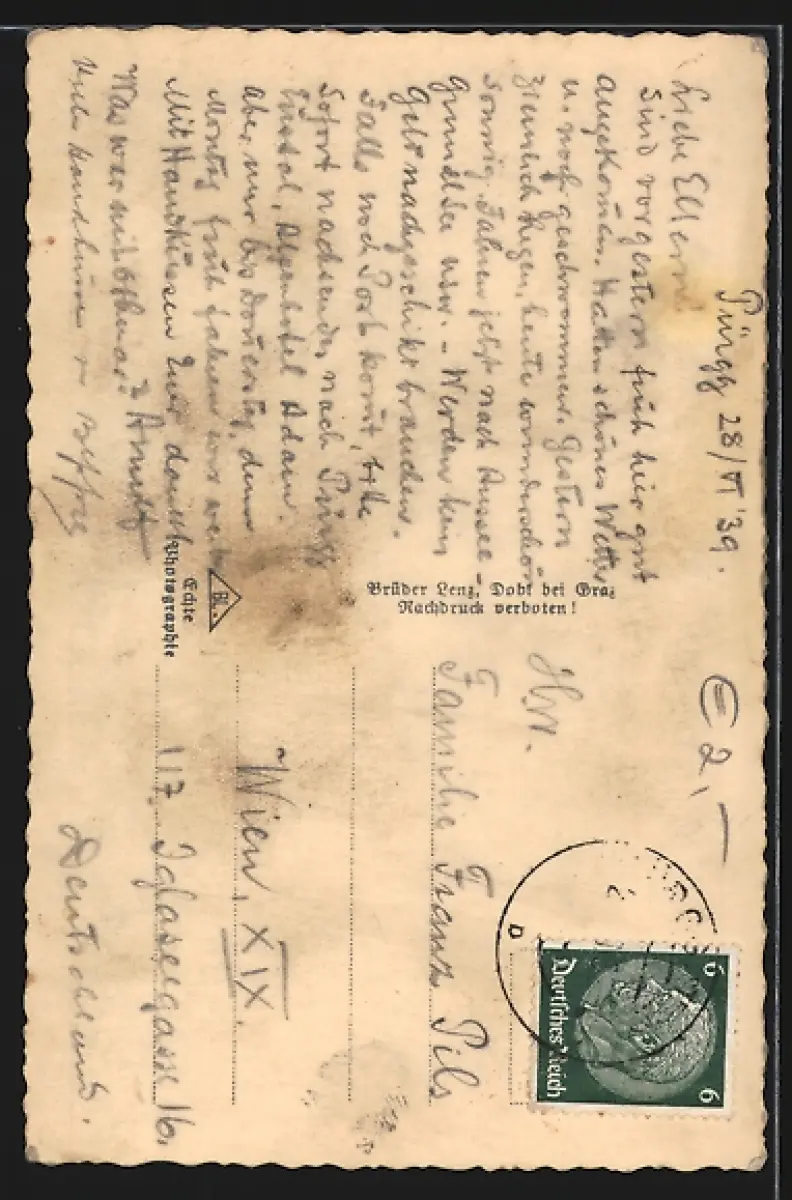 Pürgg 28/VI '39.
Liebe Eltern!
Sind vorgestern früh hier gut
angekomen. Hatten schönes Wetter
u. noch geschwommen. Gestern
ziemlich Regen, heute wunderschön
sonnig. Fahren jetzt nach Aussee –
Grundlsee usw. – Werden kein
Geld nachgeschikt brauchen.
Falls noch Post komt, bitte
sofort nachsenden nach Pürgg
Ennstal, Alpenhotel Adam.
Aber nur bis Donerstag, denn
Montag früh fahren wir weiter
Mit Handküssen Euer dankb.
Was war mit
Viele Handküsse
Brüder Lenz, Dobl bei Graz
Nachdruck verboten!
BL.
Echte
Photographie
€ 2,–
Familie Franz Pils
Wien, XIX.
117, Iglaseegasse 16.
Deutschland.
Deutsches Reich
6
6